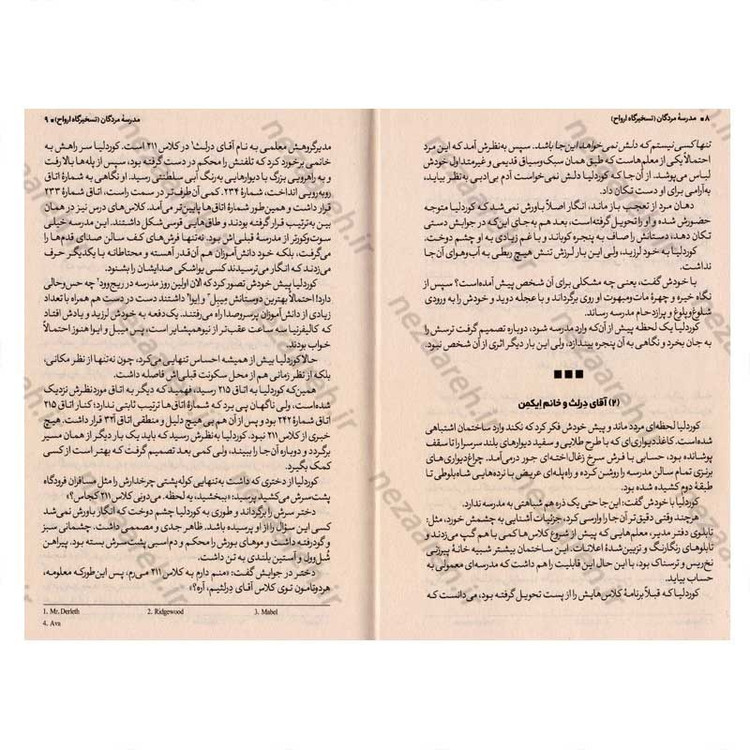 ۸ ■ مدرسهٔ مردگان (تسخیرگاه ارواح)
تنها کسی نیستم که دلش نمی‌خواهد این‌جا باشد. سپس به‌نظرش آمد که این مرد
احتمالاً یکی از معلم‌هاست که طبق همان سبک‌وسیاق قدیمی و غیرمتداول خودش
لباس می‌پوشد. از آن‌جا که کوردلیا دلش نمی‌خواست آدم بی‌ادبی به‌نظر بیاید،
به‌آرامی برای او دست تکان داد.
دهان مرد از تعجب باز ماند، انگار اصلاً باورش نمی‌شد که کوردلیا متوجه
حضورش شده و او را تحویل گرفته‌است، بعد هم به جای این‌که در جوابش دستی
تکان دهد، دستانش را صاف به پنجره کوباند و با غم زیادی به او چشم دوخت.
کوردلیا به خود لرزید، ولی این بار لرزش تنش هیچ ربطی به آب‌وهوای آن‌جا
نداشت.
با خودش گفت، یعنی چه مشکلی برای آن شخص پیش آمده‌است؟ سپس از
نگاه خیره و چهرهٔ مات‌ومبهوت او روی برگرداند و با عجله دوید و خودش را به ورودی
شلوغ‌پلوغ و پرازدحام مدرسه رساند.
کوردلیا یک لحظه پیش از آن‌که وارد مدرسه شود، دوباره تصمیم گرفت ترسش را
به جان بخرد و نگاهی به آن پنجره بیندازد، ولی این بار دیگر اثری از آن شخص نبود.
■■■
(۲) آقای دِرلث و خانم اِیکمِن
کوردلیا لحظه‌ای مردد ماند و پیش خودش فکر کرد که نکند وارد ساختمان اشتباهی
شده‌است. کاغذدیواری‌ای که با طرح طلایی و سفید دیوارهای بلند سرسرا را تا سقف
پوشانده بود، حسابی با فرش سرخ زغال‌اخته‌ای جور درمی‌آمد. چراغ‌دیواری‌های
برنزی تمام سالن مدرسه را روشن کرده و راه‌پله‌ای عریض با نرده‌هایی شاه‌بلوطی تا
طبقهٔ دوم کشیده شده بود.
کوردلیا با خودش گفت: این‌جا حتی یک ذره هم شباهتی به مدرسه ندارد.
هرچند وقتی دقیق‌تر آن‌جا را وارسی کرد، جزئیات آشنایی به چشمش خورد، مثل:
تابلوی دفتر مدیر، معلم‌هایی که پیش از شروع کلاس‌ها کمی با هم گپ می‌زدند و
تابلوهای رنگارنگ و تزیین‌شدهٔ اعلانات. این ساختمان بیشتر شبیه خانهٔ پیرزنی
نخ‌ریس و ترسناک بود، با این حال این قابلیت را هم داشت که مدرسه‌ای معمولی به
حساب بیاید.
کوردلیا که قبلاً برنامهٔ کلاس‌هایش را از پست تحویل گرفته بود، می‌دانست که
مدرسهٔ مردگان (تسخیرگاه ارواح) ■ ۹
مدیرگروهش معلمی به نام آقای دِرلث۱ در کلاس ۲۱۱ است. کوردلیا سر راهش به
خانمی برخورد کرد که تلفنش را محکم در دست گرفته بود، سپس از پله‌ها بالا رفت
و به راهرویی بزرگ با دیوارهایی به‌رنگ آبی سلطنتی رسید. او نگاهی به شمارهٔ اتاق
روبه‌رویی انداخت، شمارهٔ ۲۳۴. کمی آن‌طرف‌تر در سمت راست، اتاق شمارهٔ ۲۳۳
قرار داشت و همین‌طور شمارهٔ اتاق‌ها پایین‌تر می‌آمد. کلاس‌های درس نیز در همان
بین به‌ترتیب قرار گرفته بودند و طاق‌هایی قوسی‌شکل داشتند. این مدرسه خیلی
سوت‌وکورتر از مدرسهٔ قبلی‌اش بود. نه‌تنها فرش‌های کف سالن صدای قدم‌ها را
می‌گرفت، بلکه خود دانش‌آموزان هم آن‌قدر آهسته و محتاطانه با یکدیگر حرف
می‌زدند که انگار می‌ترسیدند کسی یواشکی صدایشان را بشنود.
کوردلیا پیش خودش تصور کرد که الان اولین روز مدرسه در ریج‌وود۲ چه حس‌وحالی
دارد! احتمالاً بهترین دوستانش میبل۳ و ایوا۴ داشتند دست در دست هم همراه با تعداد
زیادی از دانش‌آموزان پرسروصدا راه می‌رفتند. یک‌دفعه به خودش لرزید و یادش افتاد
که کالیفرنیا سه ساعت عقب‌تر از نیوهمپشایر است، پس میبل و ایوا هنوز احتمالاً
خواب بودند.
حالا کوردلیا بیش از همیشه احساس تنهایی می‌کرد، چون نه‌تنها از نظر مکانی،
بلکه از نظر زمانی هم از محل سکونت قبلی‌اش فاصله داشت.
همین‌که کوردلیا به اتاق ۲۱۵ رسید، فهمید که دیگر به اتاق موردنظرش نزدیک
شده‌است، ولی ناگهان پی برد که شمارهٔ اتاق‌ها ترتیب ثابتی ندارد؛ کنار اتاق ۲۱۵
اتاق شمارهٔ ۲۴۲ بود و پس از آن هم بی هیچ دلیل و منطقی اتاق ۳۲آ قرار داشت. هیچ
خبری از کلاس ۲۱۱ نبود. کوردلیا به‌نظرش رسید که باید یک بار دیگر از همان مسیر
برگردد و دوباره آن‌جا را ببیند، ولی کمی بعد تصمیم گرفت که بهتر است از کسی
کمک بگیرد.
کوردلیا از دختری که داشت به‌تنهایی کوله‌پشتی چرخدارش را مثل مسافران فرودگاه
پشت‌سرش می‌کشید پرسید: «ببخشید، یه لحظه. می‌دونی کلاس ۲۱۱ کجاس؟»
دختر سرش را برگرداند و طوری به کوردلیا چشم دوخت که انگار باورش نمی‌شد
کسی این سؤال را از او پرسیده باشد. ظاهر جدی و مصممی داشت. چشمانی سبز
و گودرفته داشت و موهای بورش را محکم و دم‌اسبی پشت‌سرش بسته بود. پیراهن
شُل‌وول و آستین بلندی به تن داشت.
دختر در جوابش گفت: «منم دارم به کلاس ۲۱۱ می‌رم، پس این‌طور که معلومه،
هردومون توی کلاس آقای دِرلثیم، آره؟»
1. Mr. Derleth 2. Ridgewood 3. Mabel
4. Ava
nezaareh.ir